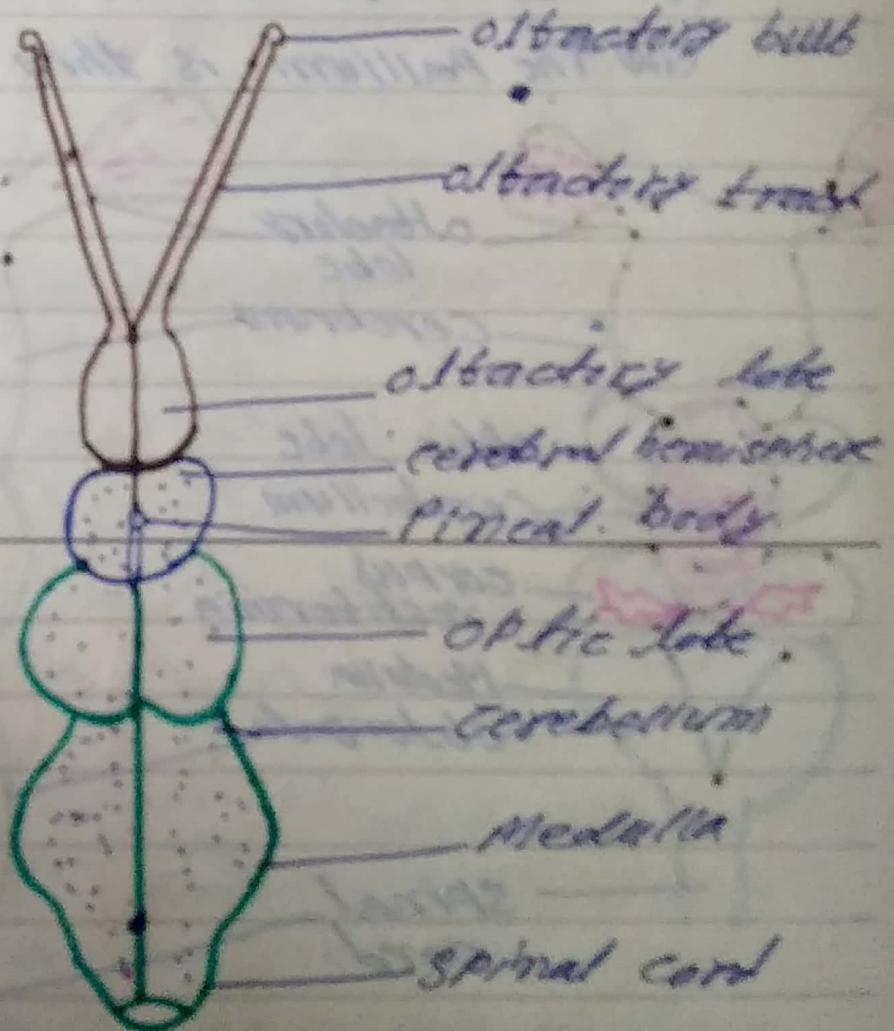 olfactory bulb
olfactory tract
olfactory lobe
cerebral hemisphere
Pineal. body
optic lobe.
cerebellum
Medulla
spinal cord